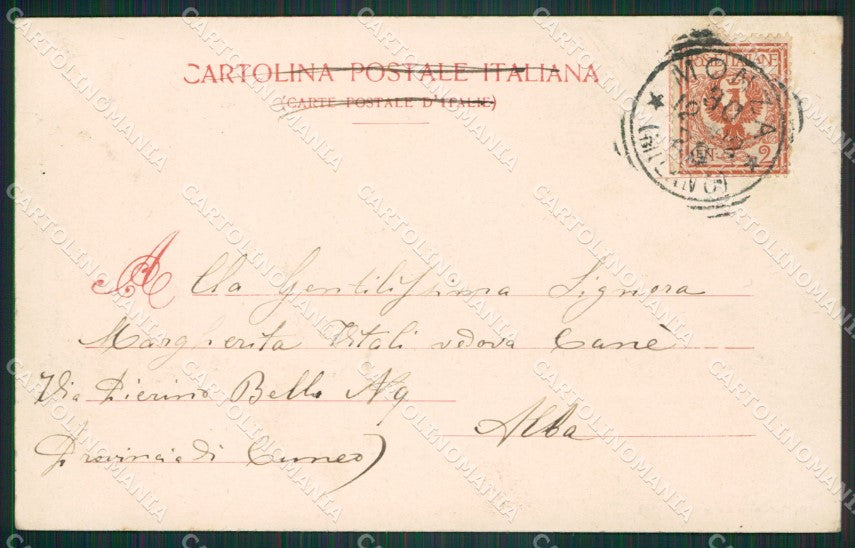 CARTOLINA POSTALE ITALIANA
(CARTE POSTALE D'ITALIE)
POSTE ITALIANE
2
MONZA
(MILANO)
Alla Gentilissima Signora
Margherita Vitali vedova Canè
Via Pierino Bello N 9
Alba
Provincia di Cuneo)
CARTOLINOMANIA